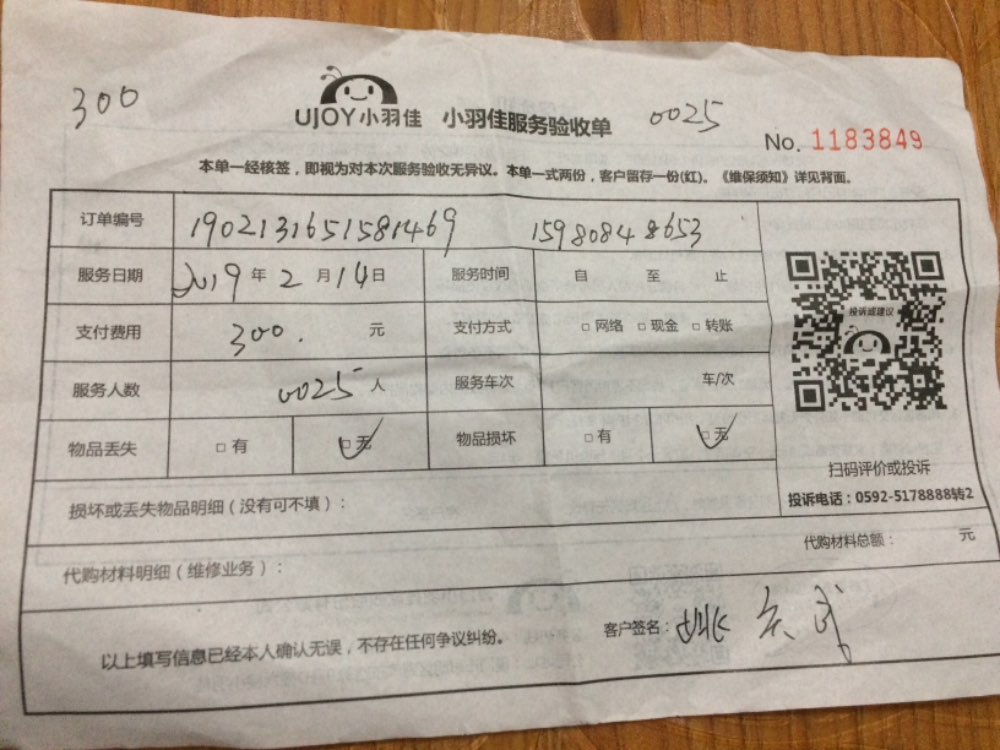 300
UJOY小羽佳 小羽佳服务验收单 0025
No. 1183849
本单一经核签，即视为对本次服务验收无异议。本单一式两份，客户留存一份(红)。《维保须知》详见背面。
订单编号 1902131651581469 15980848653
服务日期 2019年2月14日 服务时间 自 至 止
投诉或建议
支付费用 300. 元 支付方式 □网络 □现金 □转账
服务人数 0025人 服务车次 车/次
物品丢失 □有 □无 物品损坏 □有 □无
扫码评价或投诉
投诉电话：0592-5178888转2
损坏或丢失物品明细（没有可不填）：
代购材料明细（维修业务）： 代购材料总额： 元
以上填写信息已经本人确认无误，不存在任何争议纠纷。 客户签名：姚